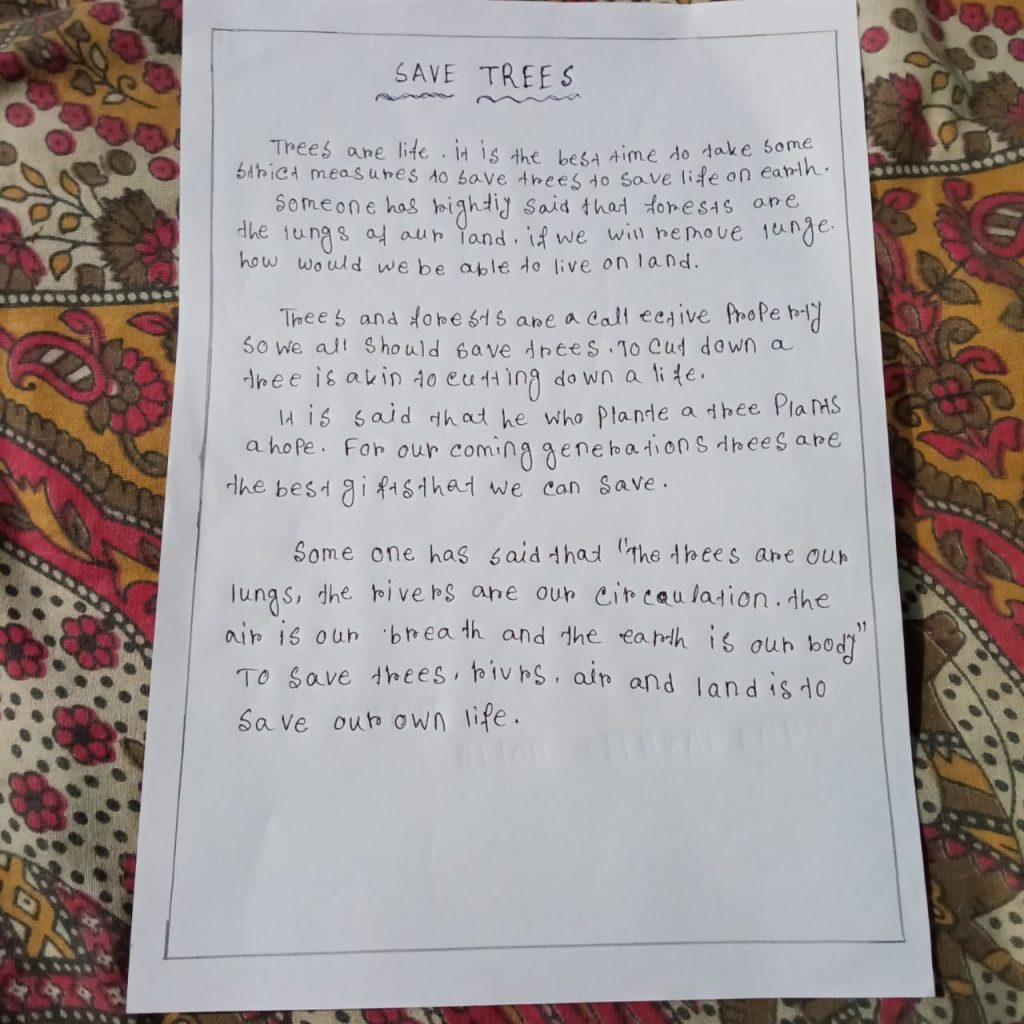 SAVE TREES
Trees are life. it is the best time to take some
strict measures to save trees to save life on earth.
Someone has rightly said that forests are
the lungs of aur land. if we will remove lunge.
how would we be able to live on land.
Trees and forests are a call ective Property
so we all should save trees. To cut down a
tree is akin to cutting down a life.
It is said that he who plante a tree Plants
a hope. For our coming generations trees are
the best gifts that we can save.
Some one has said that "The trees are our
lungs, the rivers are our circaulation. the
air is our breath and the earth is our body"
To save trees, rivrs, air and land is to
save our own life.